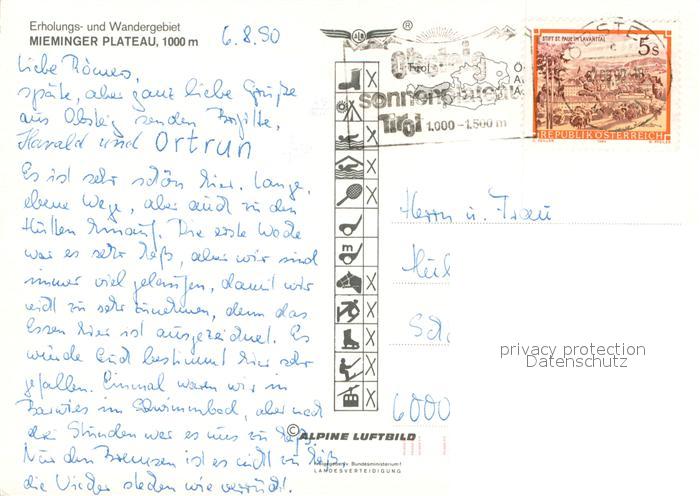 Erholungs- und Wandergebiet
MIEMINGER PLATEAU, 1000 m
6.8.90
Liebe Römers,
späte, aber ganz liebe Grüße
aus Obsteig senden Brigitte,
Harald und Ortrun
Es ist sehr schön hier. Lange,
ebene Wege, aber auch zu den
Hütten hinauf. Die erste Woche
war es sehr heiß, aber wir sind
immer viel gelaufen, damit wir
nicht zu sehr zunehmen, denn das
Essen hier ist ausgezeichnet. Es
würde Euch bestimmt hier sehr
gefallen. Einmal waren wir in
Barwies im Schwimmbad, aber nach
drei Stunden war es uns zu heiß.
Nur den Bremsen ist es nicht zu heiß
die Viecher stechen wie verrückt.
®
Obsteig
Tirol
sonnenplateau
Tirol 1.000 – 1.500 m
STIFT ST. PAUL IM LAVANTTAL
5 S
REPUBLIK ÖSTERREICH
m
Herrn u. Frau
6000
privacy protection
Datenschutz
© ALPINE LUFTBILD
Freigegeben v. Bundesministerium f.
LANDESVERTEIDIGUNG